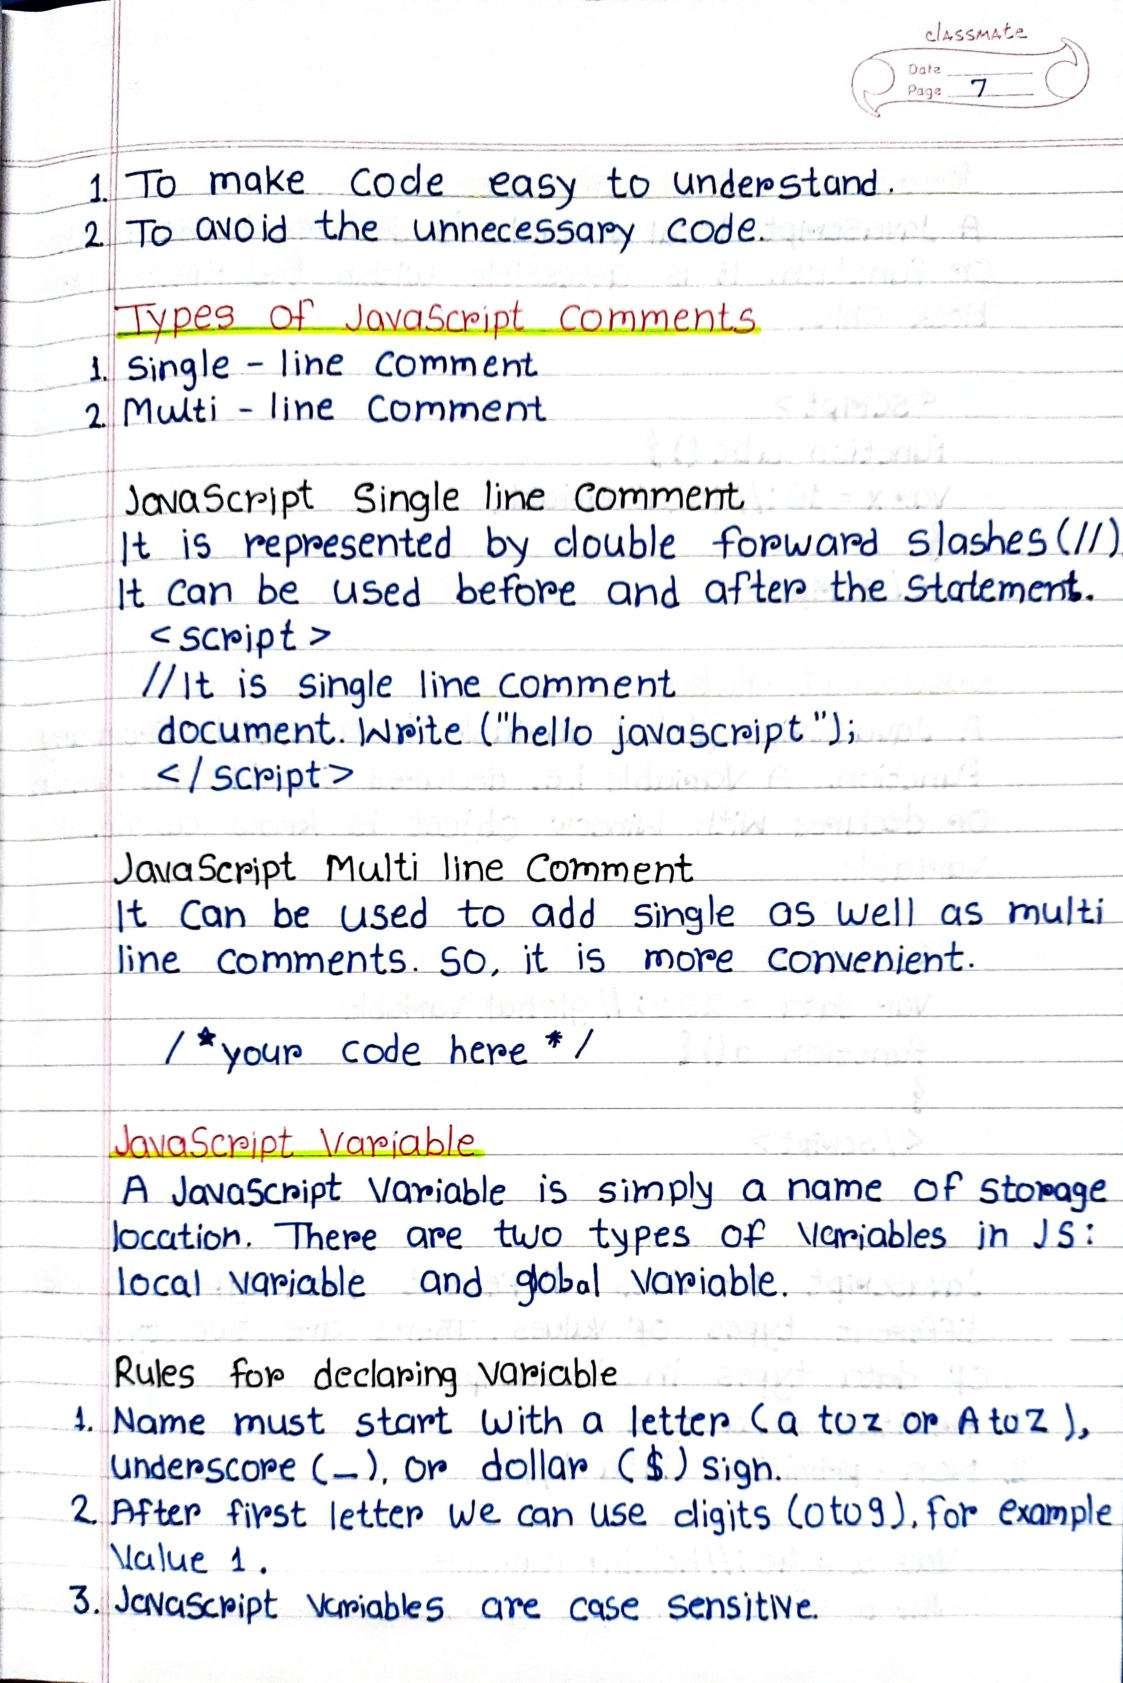 classmate
Date
Page 7
1. To make code easy to understand.
2. To avoid the unnecessary code.
Types of JavaScript Comments
1. Single - line comment
2. Multi - line comment
JavaScript Single line Comment
It is represented by double forward slashes (//)
It can be used before and after the statement.
<script>
//It is single line comment
document. Write ("hello javascript");
</script>
JavaScript Multi line Comment
It can be used to add single as well as multi
line comments. So, it is more convenient.
/*your code here */
JavaScript Variable
A JavaScript Variable is simply a name of storage
location. There are two types of variables in JS:
local variable and global variable.
Rules for declaring variable
1. Name must start with a letter (a to z or A to Z),
underscore (_), or dollar ($) sign.
2. After first letter we can use digits (0 to 9), for example
Value 1.
3. JavaScript variables are case sensitive.